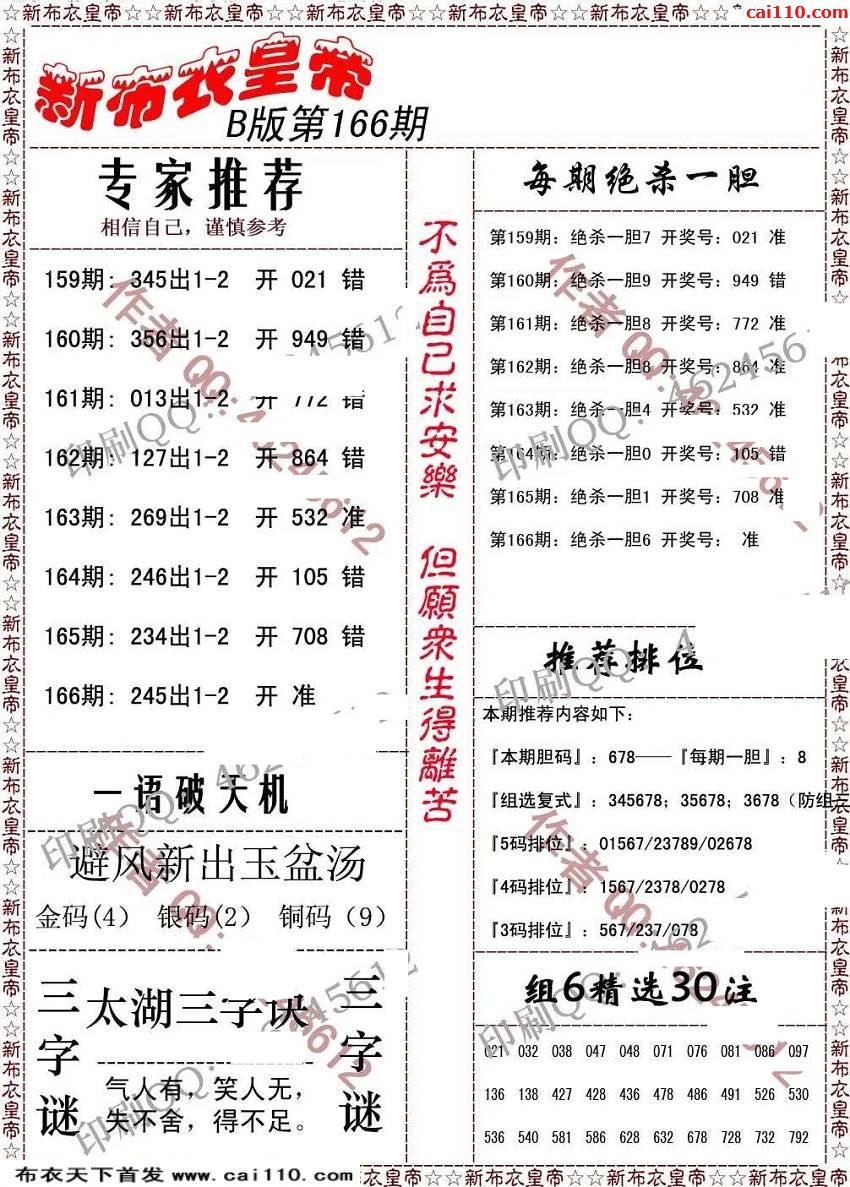 ☆新布衣皇帝☆☆☆新布衣皇帝☆☆☆新布衣皇帝☆☆☆新布衣皇帝☆☆☆新布衣皇帝☆☆☆
cai110.com
新布衣皇帝
B版第166期
专家推荐
相信自己，谨慎参考
159期: 345出1-2 开 021 错
160期: 356出1-2 开 949 错
161期: 013出1-2 开 772 错
162期: 127出1-2 开 864 错
163期: 269出1-2 开 532 准
164期: 246出1-2 开 105 错
165期: 234出1-2 开 708 错
166期: 245出1-2 开 准
一语破天机
避风新出玉盆汤
金码(4) 银码(2) 铜码（9）
三字谜
太湖三字诀
气人有，笑人无，
失不舍，得不足。
三字谜
不為自己求安樂 但願衆生得離苦
每期绝杀一胆
第159期：绝杀一胆7 开奖号：021 准
第160期：绝杀一胆9 开奖号：949 错
第161期：绝杀一胆8 开奖号：772 准
第162期：绝杀一胆8 开奖号：864 准
第163期：绝杀一胆4 开奖号：532 准
第164期：绝杀一胆0 开奖号：105 错
第165期：绝杀一胆1 开奖号：708 准
第166期：绝杀一胆6 开奖号： 准
推荐排位
本期推荐内容如下：
『本期胆码』：678——『每期一胆』：8
『组选复式』：345678；35678；3678（防组三
『5码排位』：01567/23789/02678
『4码排位』：1567/2378/0278
『3码排位』：567/237/078
组6精选30注
021 032 038 047 048 071 076 081 086 097
136 138 427 428 436 478 486 491 526 530
536 540 581 586 628 632 678 728 732 792
作者QQ:
印刷QQ: 462456
布衣天下首发 www.cai110.com
衣皇帝☆☆☆新布衣皇帝☆☆☆新布衣皇帝☆☆☆新布衣皇帝☆